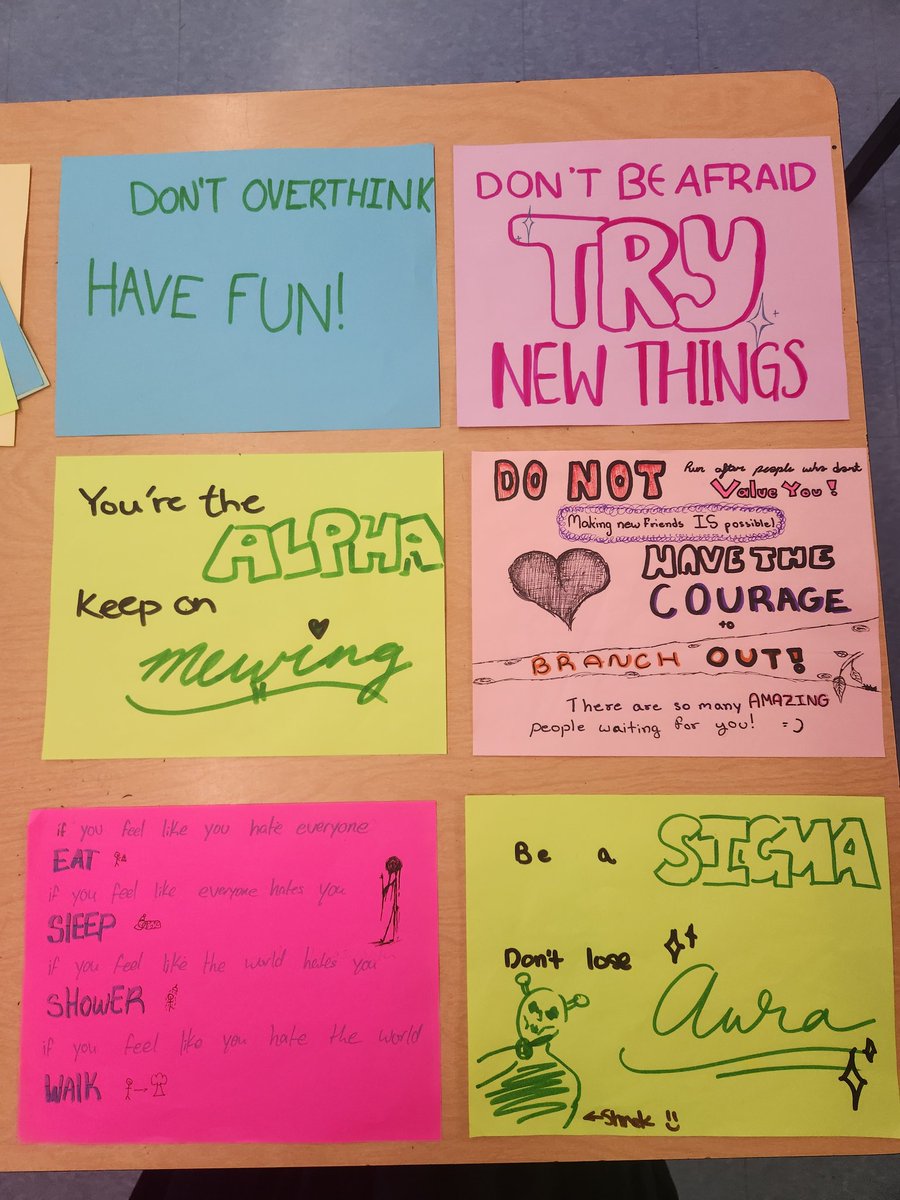 DON'T OVERTHINK
HAVE FUN!
DON'T BE AFRAID
TRY
NEW THINGS
You're the
ALPHA
Keep on
mewing
DO NOT Run after people who don't
Value You!
Making new Friends IS possible!
HAVE THE
COURAGE
to
BRANCH OUT!
There are so many AMAZING
people waiting for you! =)
if you feel like you hate everyone
EAT
if you feel like everyone hates you
SLEEP
if you feel like the world hates you
SHOWER
if you feel like you hate the world
WALK
Be a SIGMA
Don't lose
Aura
←Shrek